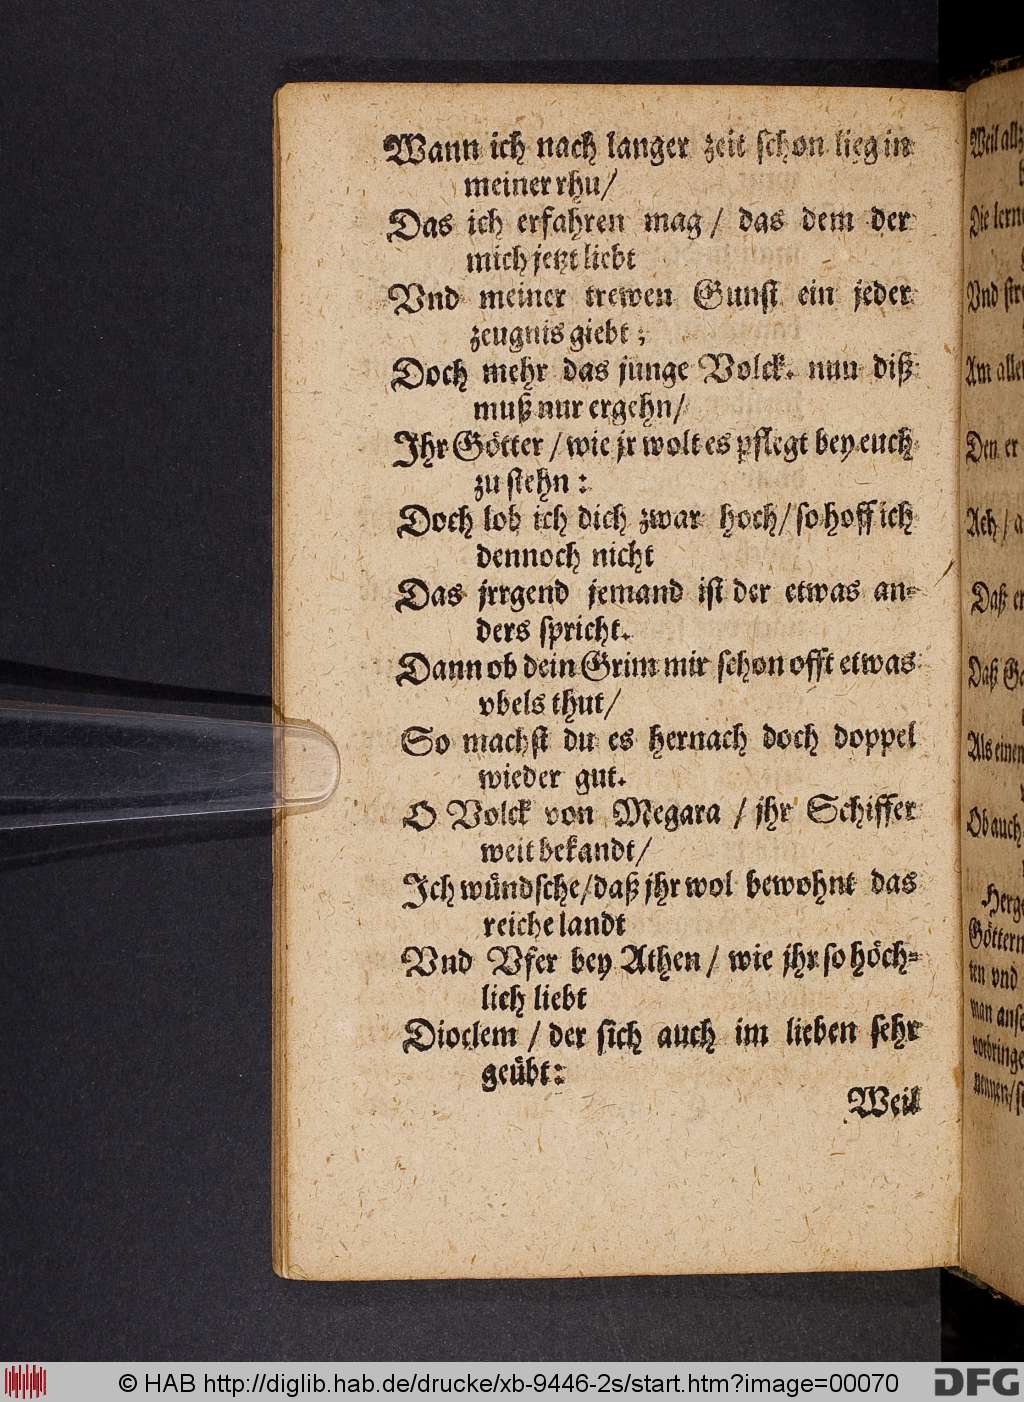 Wann ich nach langer zeit schon lieg in
meiner rhu/
Das ich erfahren mag / das dem der
mich jetzt liebt
Vnd meiner trewen Gunst ein jeder
zeugnis giebt;
Doch mehr das junge Volck. nun diß
muß nur ergehn/
Ihr Götter / wie jr wolt es pflegt bey euch
zu stehn :
Doch lob ich dich zwar hoch/ so hoff ich
dennoch nicht
Das jrrgend jemand ist der etwas an-
ders spricht.
Dann ob dein Grim mir schon offt etwas
vbels thut/
So machst du es hernach doch doppel
wieder gut.
O Volck von Megara / jhr Schiffer
weit bekandt/
Ich wündsche/daß jhr wol bewohnt das
reiche landt
Vnd Vfer bey Athen / wie jhr so höch-
lich liebt
Dioclem / der sich auch im lieben sehr
geübt:
Weil
Die
Vnd
Am
Den er
Ach /
Daß
Daß
Als einen
Ob auch
Göttern
ten vnd
man
© HAB http://diglib.hab.de/drucke/xb-9446-2s/start.htm?image=00070
DFG